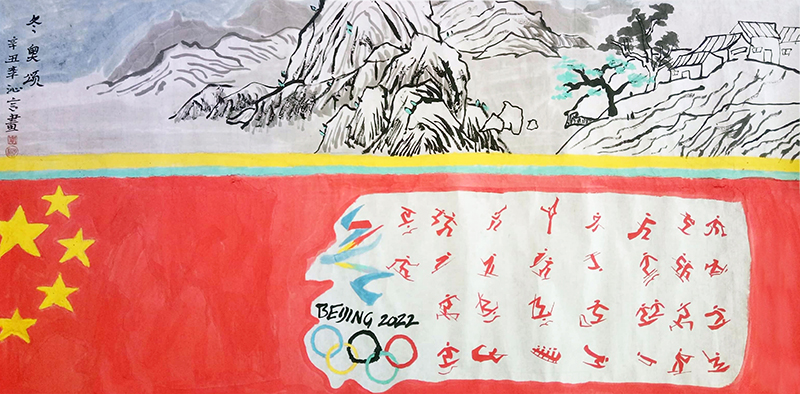 冬奥颂
辛丑年沁言畫
BEIJING 2022